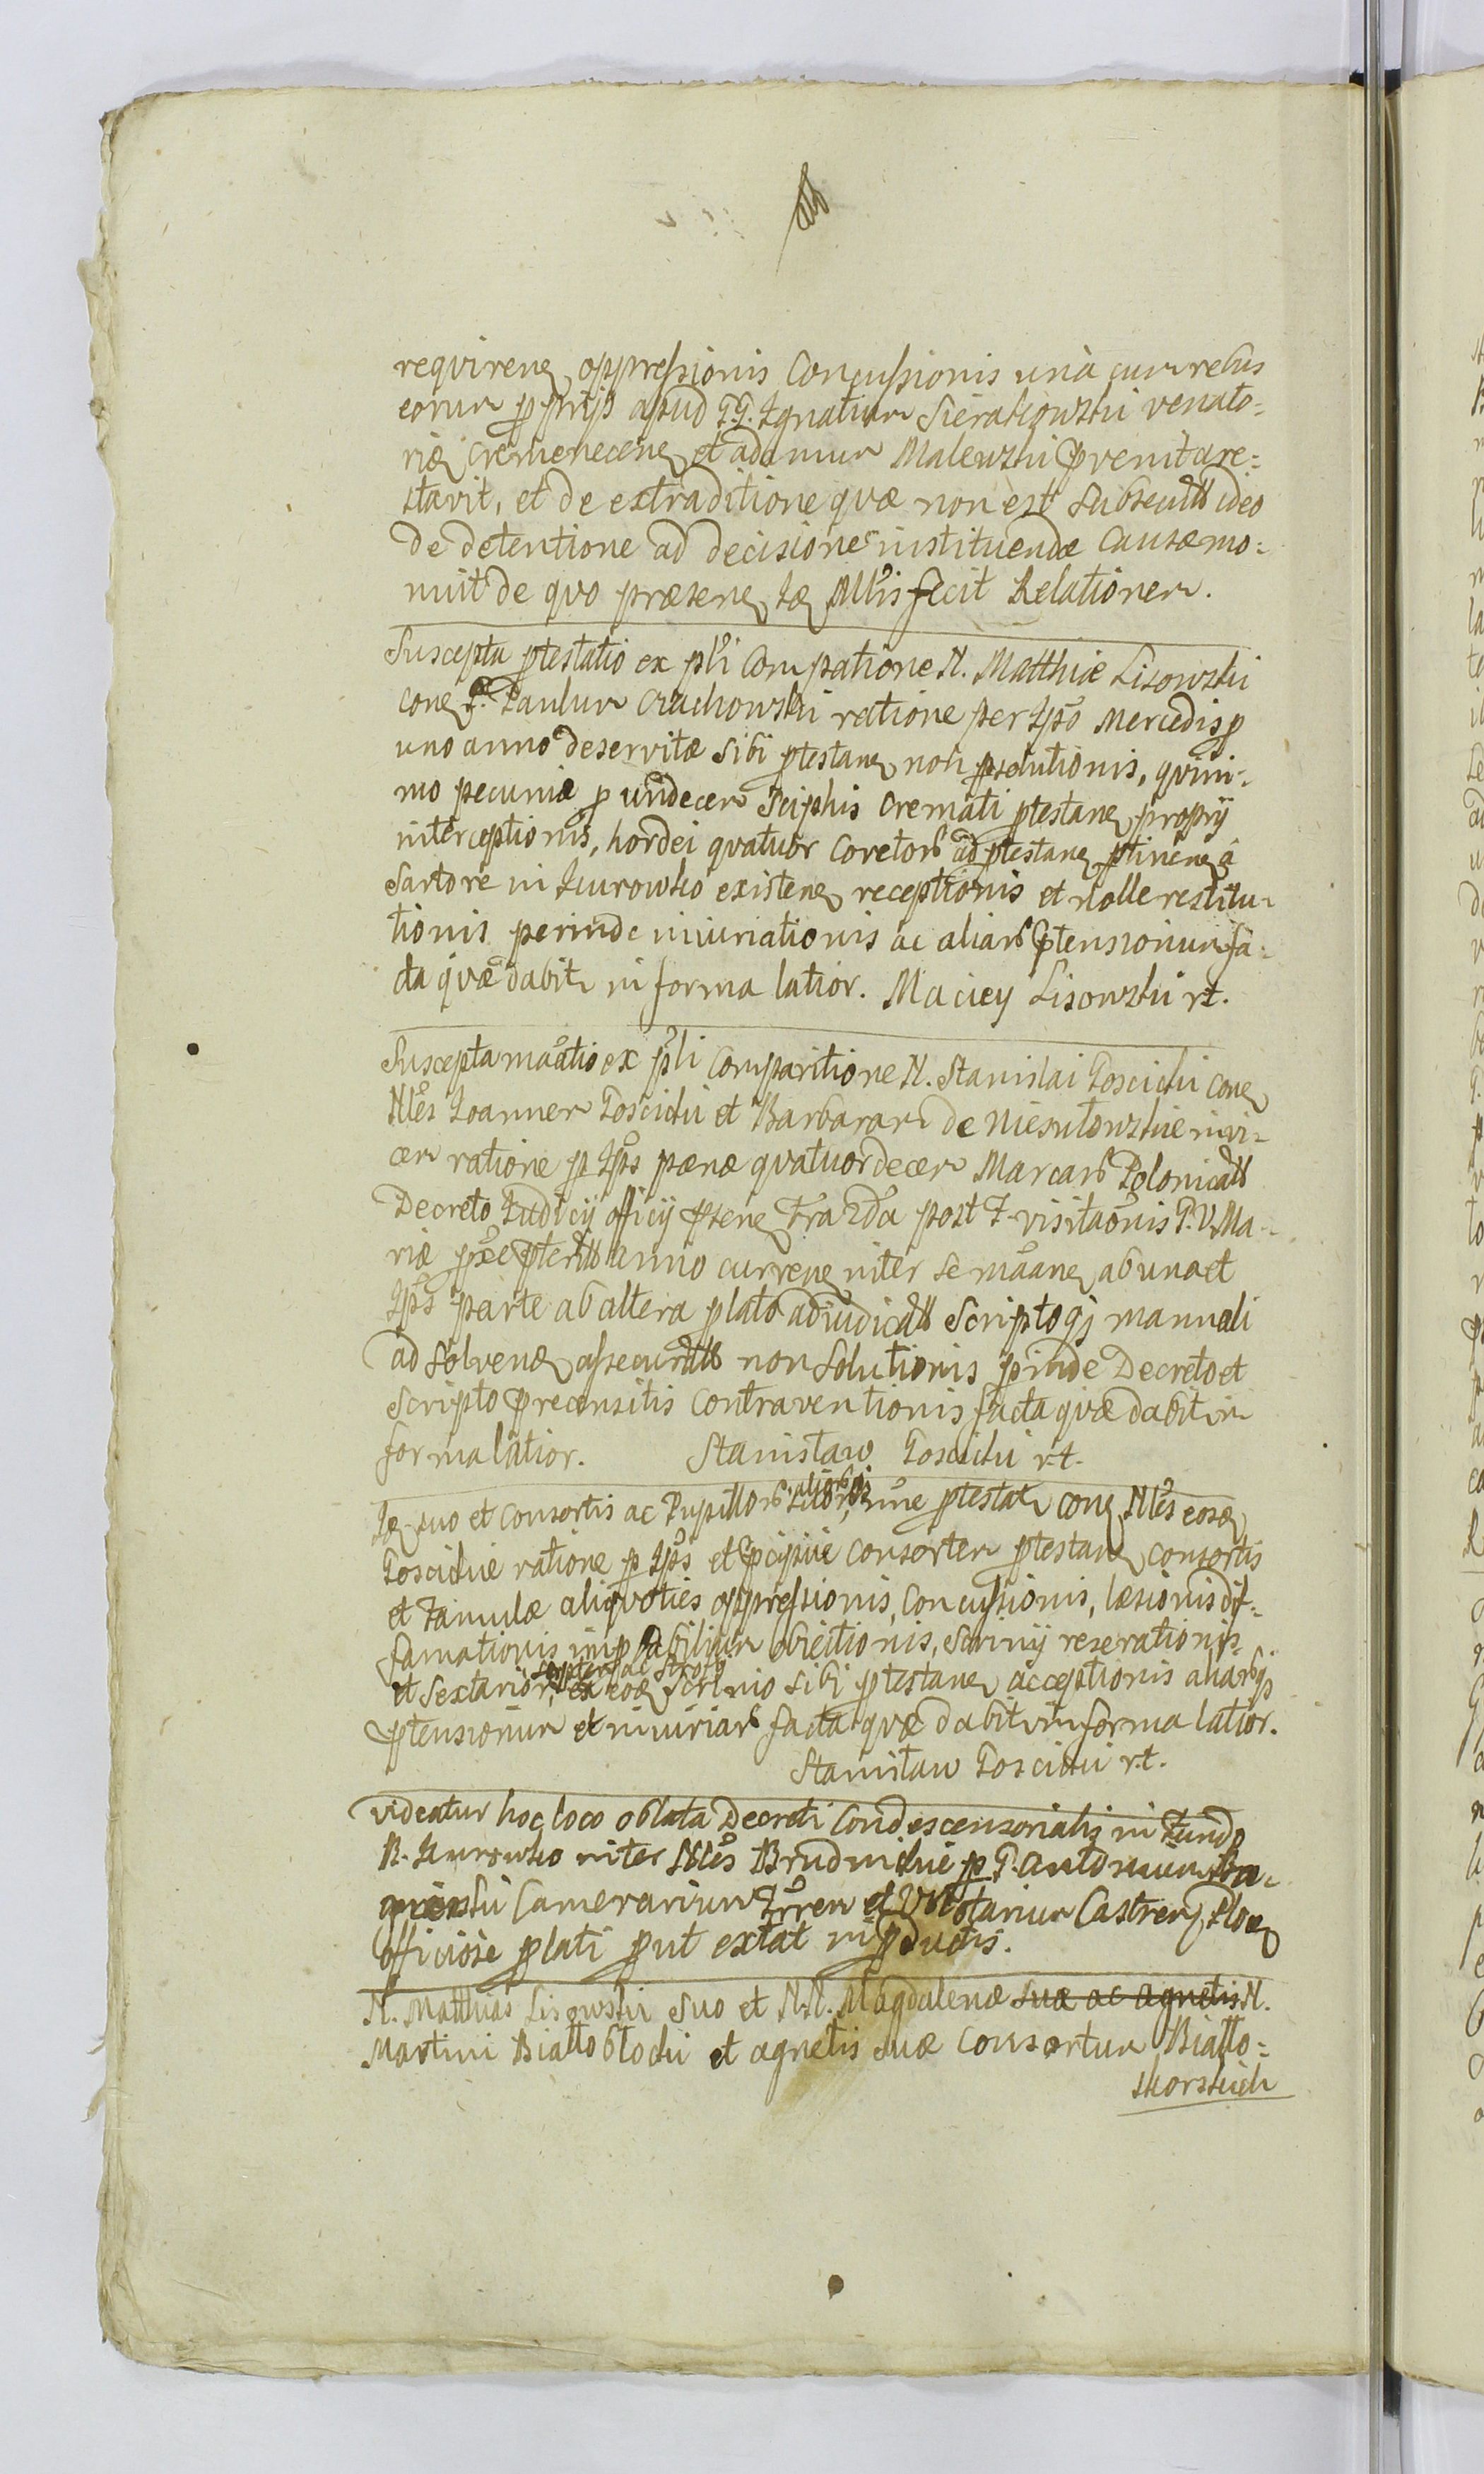 requirenѢ oppressionis Concussionis una cum rebus
eorum pprijs apud G.G. Ignatium Sierakowski venato=
riæ Cremenecen et adamum Malewski pvenit are=
stavit, et de extraditione quæ non est subsecuta ideo
de detentione ad decisione instituendæ Causæ mo=
nuit de quo præsen Mtris fecit Relationem.
Suscepta ptestatio ex pli Comparatione N. Matthiæ Lisowski
con G. Paulum Czachowski ratione per Ips Mercedis p
uno anno deservitæ sibi ptestan non psolutionis, quini=
mo pecuniæ p undecem Sciphis Cremati ptestan proprij
interceptionis, hordei quatuor Coretor ad ptestan ptinen a
Sartore in Jurowko existen receptionis et nolle restitu=
tionis perinde iniuriationis ac aliar ptensionum fa=
cta quæ dabit in forma latior. Maciey Lisowski rt.
Suscepta maatio ex pli Comparitione N. Stanislai Goscicki con
Nles Joannem Goscicki et Barbaram de Niesulowskie invi=
cem ratione p Ips pœnæ quatuordecem Marcar Polonical
Decreto Judicij officij psen fra 2da post F. visitaonis B.V. Ma=
riæ pxe pterit anno curren inter se maan ab una et
Ips parte ab altera plato adiudicat Scripto qj manuali
ad solven assecurat non solutionis pinde Decreto et
Scripto precensitis Contraventionis facta quæ dabit in
forma latior. Stanisław Goscicki rt.
suo et consortis ac Pupillor nne ptestat con Nles eosd
Goscickie ratione p Ips et pcipue consortem ptestan consortis
et Famulæ aliquoties oppressionis, Concussionis, læsionis dif=
famationis improbabilium obiectionis, Scrinij reserationis
et Sextarior septem ac ex eod Scrinio sibi ptestan acceptionis aliarqj
ptensionum et iniuriar facta quæ dabit in forma latior.
Stanisław Goscicki rt.
videatur hoc loco oblata Decreti Condescensorialis in Fundo
B. Jurowko inter Nles Brudnickie p G. antonium
Camerarium Trrem et Vnotarium Castren Ploc
officiose plati put extat in pductis.
N. Matthias Lisowski suo et N.N. Magdalenæ suæ ac agnetis N.
Martini Białłobłocki et agnetis suæ Consortum Biało=
skorskich